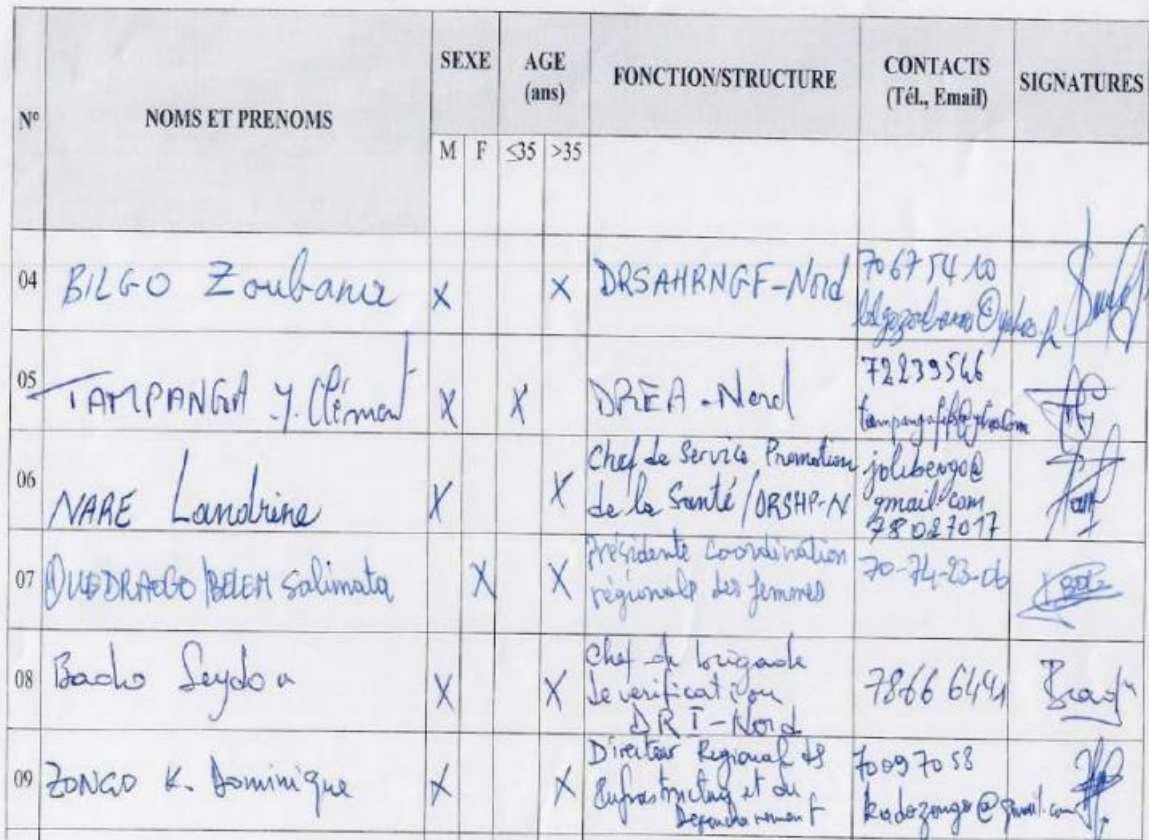 N° NOMS ET PRENOMS SEXE AGE (ans) FONCTION/STRUCTURE CONTACTS (Tél., Email) SIGNATURES
M F ≤35 >35
04 BILGO Zoubana X X DRSAHRNGF-Nord 70675410
05 TAMPANGA Y. Clément X X DREA-Nord 72239546
06 NARE Landrine X X Chef de Service Promotion de la Santé/DRSHP-N jolibengo@gmail.com 78027017
07 OUEDRAOGO/BELEM Salimata X X Présidente coordination régionale des femmes 70-74-23-06
08 Bado Seydou X X Chef de brigade de verification DRI-Nord 78666441
09 ZONGO K. Dominique X X Directeur Regional des Infrastructures et du Desenclavement 70097058 kadozongo@gmail.com